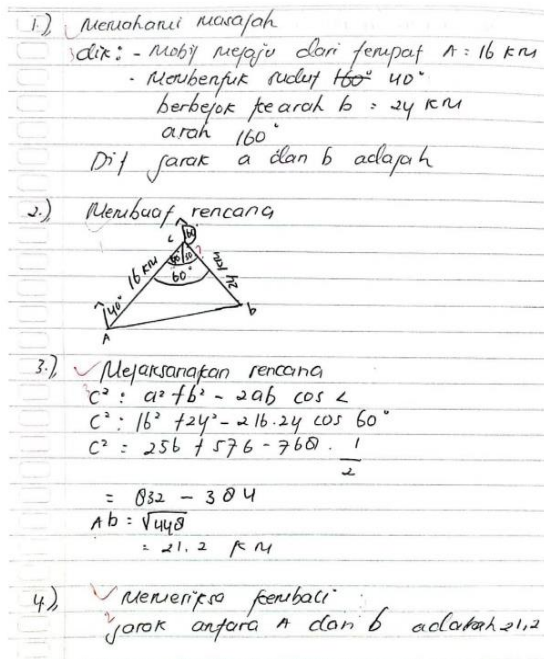 1.) Memahami masalah
dik: - Mobil melaju dari tempat A = 16 KM
- Membentuk sudut 160° 40°
berbelok kearah b = 24 KM
arah 160°
Dit jarak a dan b adalah
2.) Membuat rencana
C
?
16 KM
60°
24 KM
40°
A
b
3.) Melaksanakan rencana
C² : a² + b² - 2ab cos L
C² : 16² + 24² - 2 16.24 cos 60°
C² = 256 + 576 - 768 . 1/2
= 832 - 384
Ab = √448
= 21.2 KM
4.) Memeriksa kembali
jarak antara A dan b adalah 21,2